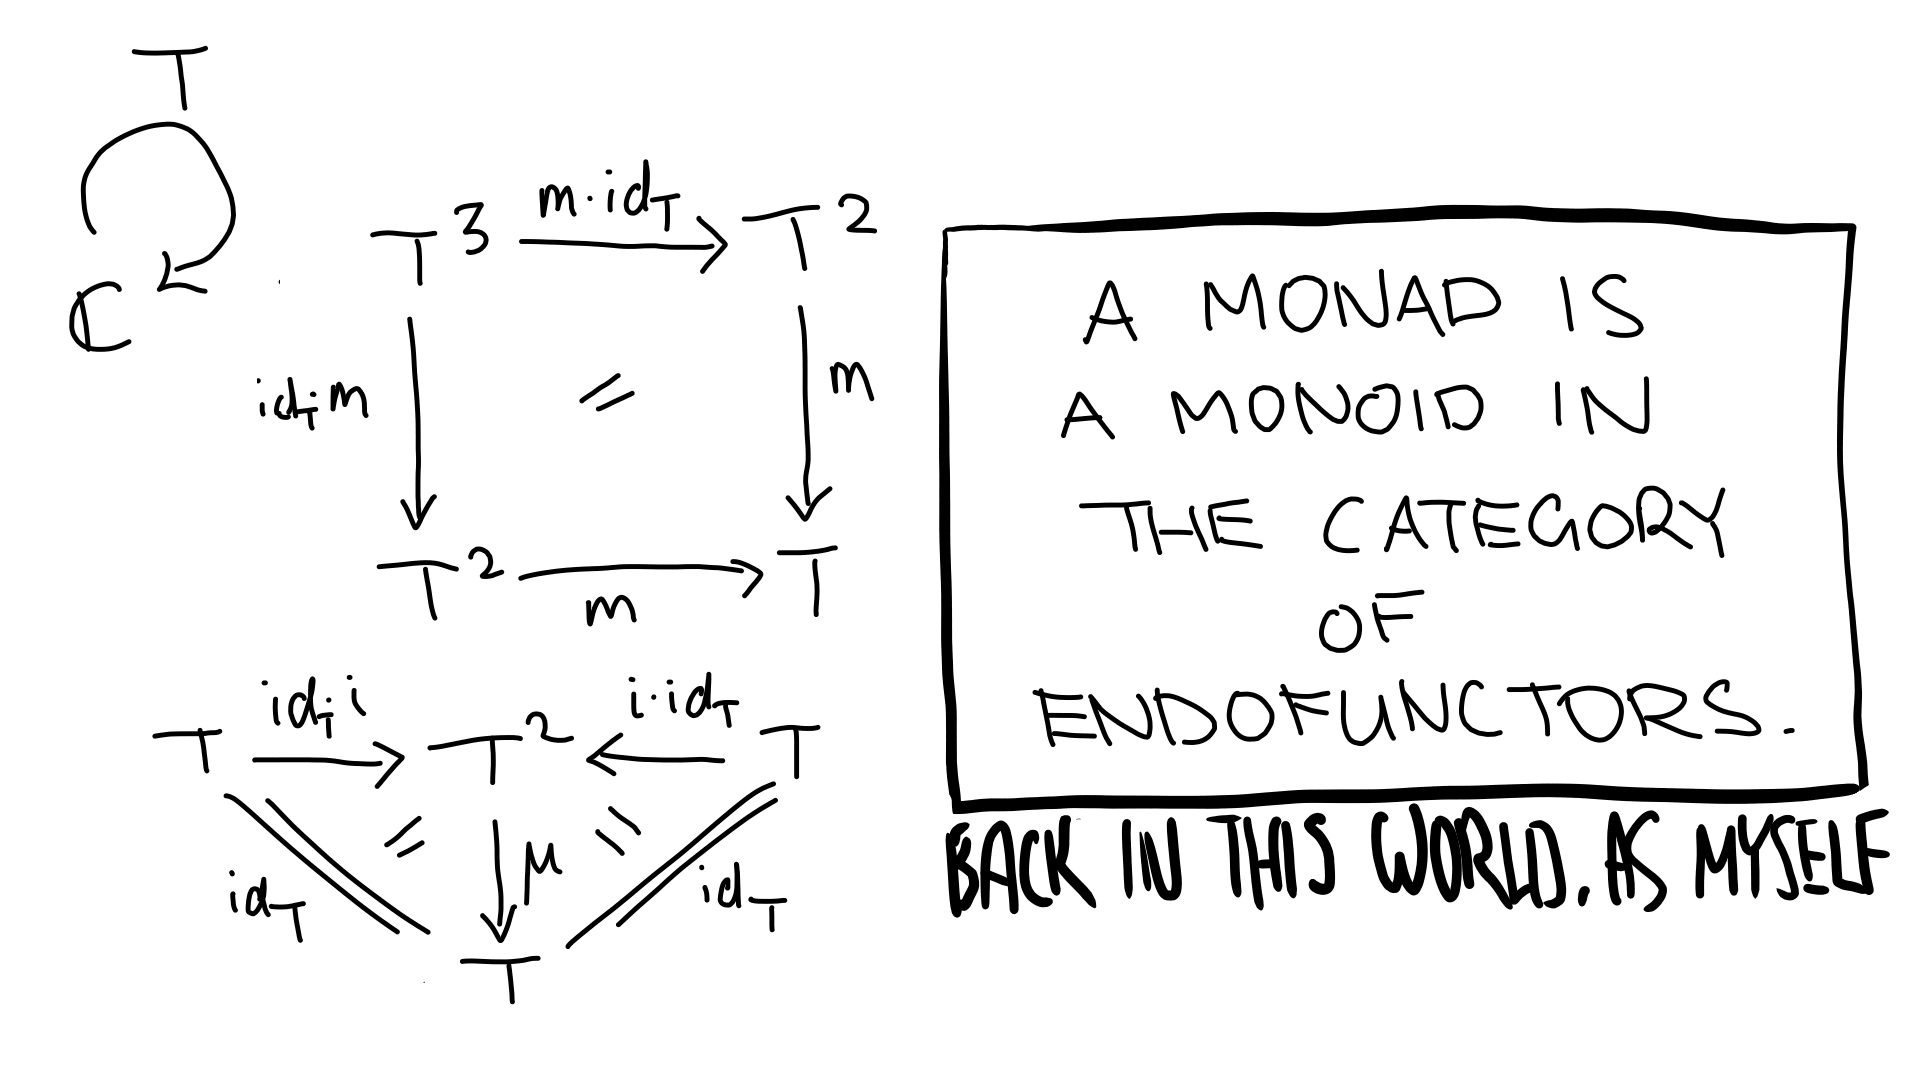 T
C
T³ m·id_T T²
id_T·m = m
T² m T
T id_T·i T² i·id_T T
= μ =
id_T id_T
T
A MONAD IS
A MONOID IN
THE CATEGORY
OF
ENDOFUNCTORS.
BACK IN THIS WORLD. AS MYSELF